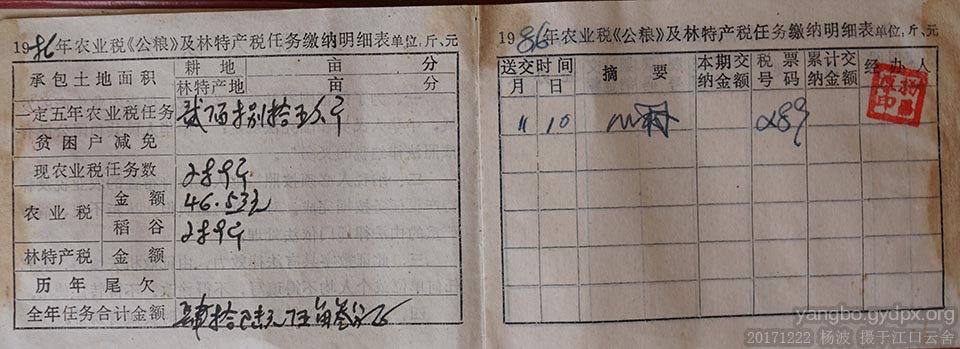 1986年农业税《公粮》及林特产税任务缴纳明细表 单位，斤、元
承包土地面积 耕地 亩 分
林特产地 亩 分
一定五年农业税任务
贫困户减免
现农业税任务数 289斤
农业税 金额 46.53元
稻谷 289斤
林特产税 金额
历年尾欠
全年任务合计金额 肆拾陆元伍角叁分
1986年农业税《公粮》及林特产税任务缴纳明细表 单位，斤、元
送交时间 摘要 本期交纳金额 税票号码 累计交纳金额 经办人
月 日
11 10 289
yangbo.gydpx.org
20171222 杨波 摄于江口云舍